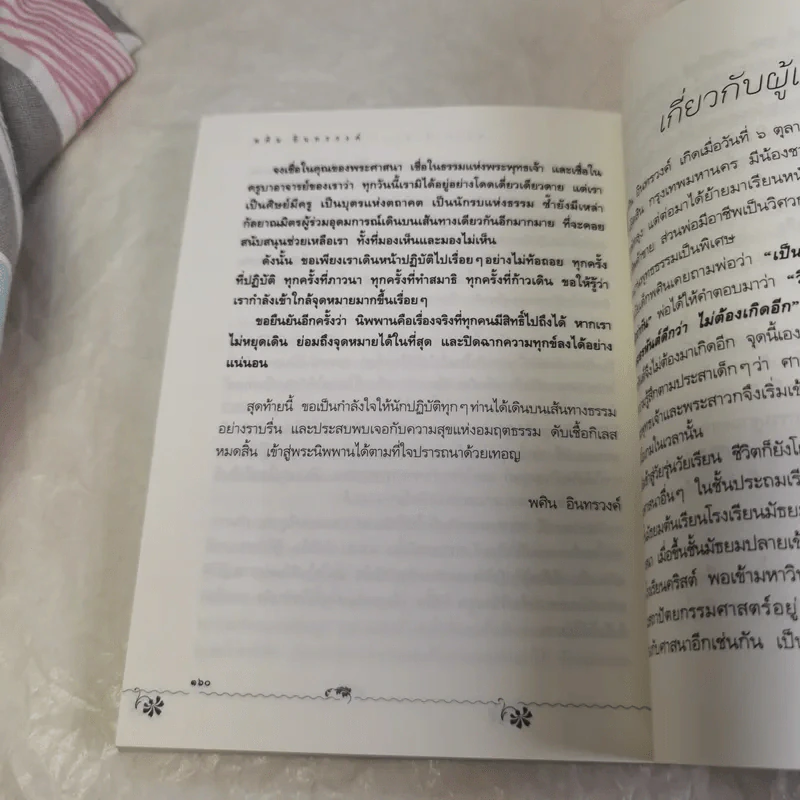 พศิน อินทรวงศ์
จงเชื่อในคุณของพระศาสนา เชื่อในธรรมแห่งพระพุทธเจ้า และเชื่อใน
ครูบาอาจารย์ของเราว่า ทุกวันนี้เรามิได้อยู่อย่างโดดเดี่ยวเดียวดาย แต่เรา
เป็นศิษย์มีครู เป็นบุตรแห่งตถาคต เป็นนักรบแห่งธรรม ซ้ำยังมีเหล่า
กัลยาณมิตรผู้ร่วมอุดมการณ์เดินบนเส้นทางเดียวกันอีกมากมาย ที่จะคอย
สนับสนุนช่วยเหลือเรา ทั้งที่มองเห็นและมองไม่เห็น
ดังนั้น ขอเพียงเราเดินหน้าปฏิบัติไปเรื่อยๆ อย่างไม่ท้อถอย ทุกครั้ง
ที่ปฏิบัติ ทุกครั้งที่ภาวนา ทุกครั้งที่ทำสมาธิ ทุกครั้งที่ก้าวเดิน ขอให้รู้ว่า
เรากำลังเข้าใกล้จุดหมายมากขึ้นเรื่อยๆ
ขอยืนยันอีกครั้งว่า นิพพานคือเรื่องจริงที่ทุกคนมีสิทธิ์ไปถึงได้ หากเรา
ไม่หยุดเดิน ย่อมถึงจุดหมายได้ในที่สุด และปิดฉากความทุกข์ลงได้อย่าง
แน่นอน
สุดท้ายนี้ ขอเป็นกำลังใจให้นักปฏิบัติทุกๆ ท่านได้เดินบนเส้นทางธรรม
อย่างราบรื่น และประสบพบเจอกับความสุขแห่งอมฤตธรรม ดับเชื้อกิเลส
หมดสิ้น เข้าสู่พระนิพพานได้ตามที่ใจปรารถนาด้วยเทอญ
พศิน อินทรวงศ์
๑๖๐
เกี่ยวกับผู้
อินทรวงศ์ เกิดเมื่อวันที่ ๖ ตุลา
กรุงเทพมหานคร มีน้องชา
แต่ต่อมาได้ย้ายมาเรียนหน
ส่วนพ่อมีอาชีพเป็นวิศว
พุทธธรรมเป็นพิเศษ
พศินเคยถามพ่อว่า "เป็น
พ่อได้ให้คำตอบมาว่า
ดีกว่า ไม่ต้องเกิดอีก"
จึงไม่ต้องมาเกิดอีก จุดนี้เอง
รู้สึกตามประสาเด็กๆ ว่า ศา
พุทธเจ้าและพระสาวกจึงเริ่มเข้
ในเวลานั้น
สู่วัยรุ่นวัยเรียน ชีวิตก็ยังโ
ศาสนาอื่นๆ ในชั้นประถมเรี
มัธยมต้นเรียนโรงเรียนมัธยม
เมื่อขึ้นชั้นมัธยมปลายเข้
โรงเรียนคริสต์ พอเข้ามหาวิท
สถาปัตยกรรมศาสตร์อยู่
กับศาสนาอีกเช่นกัน เป็น